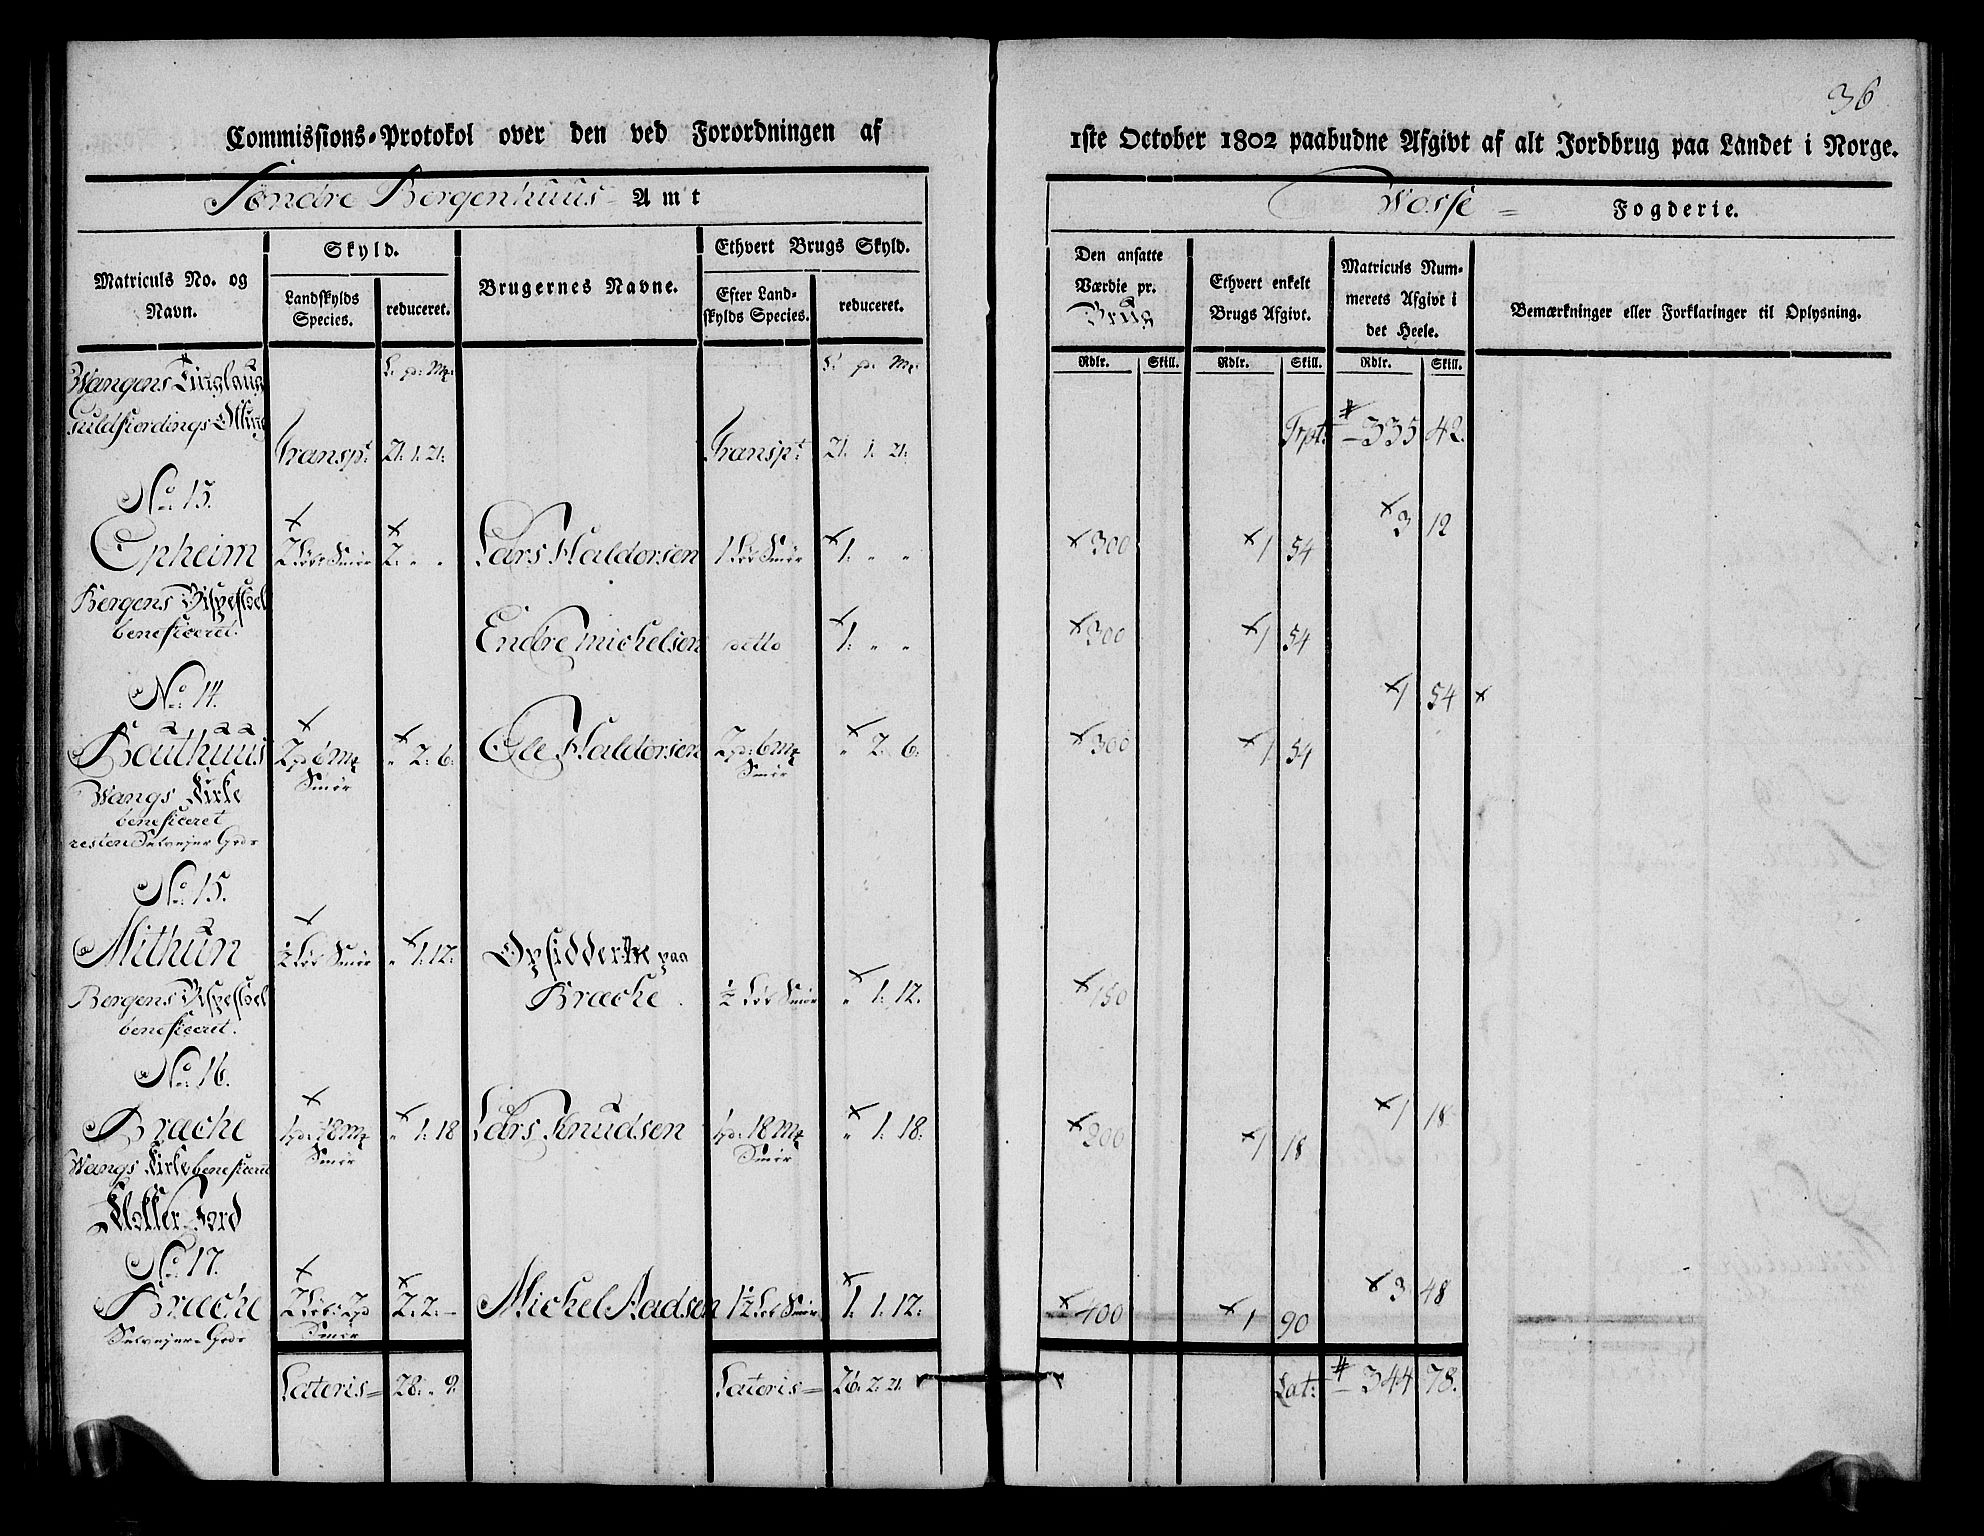 36
Commissions-Protokol over den ved Forordningen af 1ste October 1802 paabudne Afgivt af alt Jordbrug paa Landet i Norge.
Søndre Bergenhuus Amt
Vosse = Fogderie.
Matriculs No. og Navn.
Skyld.
Landskylds Species.
reduceret.
Brugernes Navne.
Ethvert Brugs Skyld.
Efter Landskylds Species.
reduceret.
Den ansatte Værdie pr. Brug
Ethvert enkelt Brugs Afgivt.
Matriculs Nummerets Afgivt i det Heele.
Bemærkninger eller Forklaringer til Oplysning.
Rdlr. Skill. Rdlr. Skill. Rdlr. Skill.
Wangens Tinglaug L: p: Mk: L: p: Mk:
Guldfiordings Otting
Transpt: 21: 1: 21: Transpt: 21: 1: 21: Trpt: # 335 42.
No 13.
x 3 12
Opheim 2 Løb Smør 2: " " Lars Haldorsen 1 Løb Smør 1: " " x 300 x 1 54
Bergens Bispestoel
beneficeret. Endre Michelsen detto 1: " " x 300 x 1 54
No 14. x 1 54 x
Bøuthuus 2 p: 6 Mk " 2: 6: Ole Haldorsen 2 p: 6 Mk " 2: 6: x 300 x 1 54
Smør Smør
Wangs Kirke
beneficeret
resten Selvejer Gods
No 15.
Mithun ½ Løb Smør " 1: 12: Opsidderne paa
Bergens Bispestoel Bræche ½ Løb Smør " 1: 12: x 150
beneficeret.
No 16.
x 1 18
Bræche 1 p: 18 Mk " 1: 18 Lars Knudsen 1 p: 18 Mk " 1: 18: x 200 x 1 18
Smør Smør
Wangs Kirke beneficeret
Klokker Jord
No 17.
x 3 48
Bræche 2 Løb 2 p 2: 2: – Michel Aadsen 1½ Løb Smør 1: 1: 12: x 400 x 1 90
Selvejer Gods Smør
Lateris = 28: " 9. Lateris = 26: 2: 21: Lat: # 344 78.